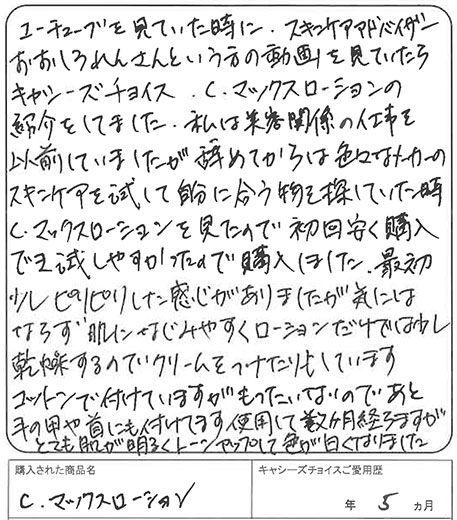 ユーチューブを見ていた時に、スキンケアアドバイザー
おおしろれんさんという方の動画を見ていたら
キャシーズチョイス．C.マックスローションの
紹介をしてました。私は美容関係の仕事を
以前していましたが辞めてからは色々なメーカーの
スキンケアを試して自分に合う物を探していた時
C.マックスローションを見たので初回安く購入
でき試しやすかったので購入しました。最初
少しピリピリした感じがありましたが気には
ならず肌になじみやすくローションだけでは少し
乾燥するのでクリームをつけたりもしています
コットンで付けていますがもったいないのであと
手の甲や首にも付けてます使用して数ヶ月経ちますが
とても肌が明るくトーンアップして色が白くなりました
購入された商品名
キャシーズチョイスご愛用歴
C.マックスローション
年 5 ヵ月